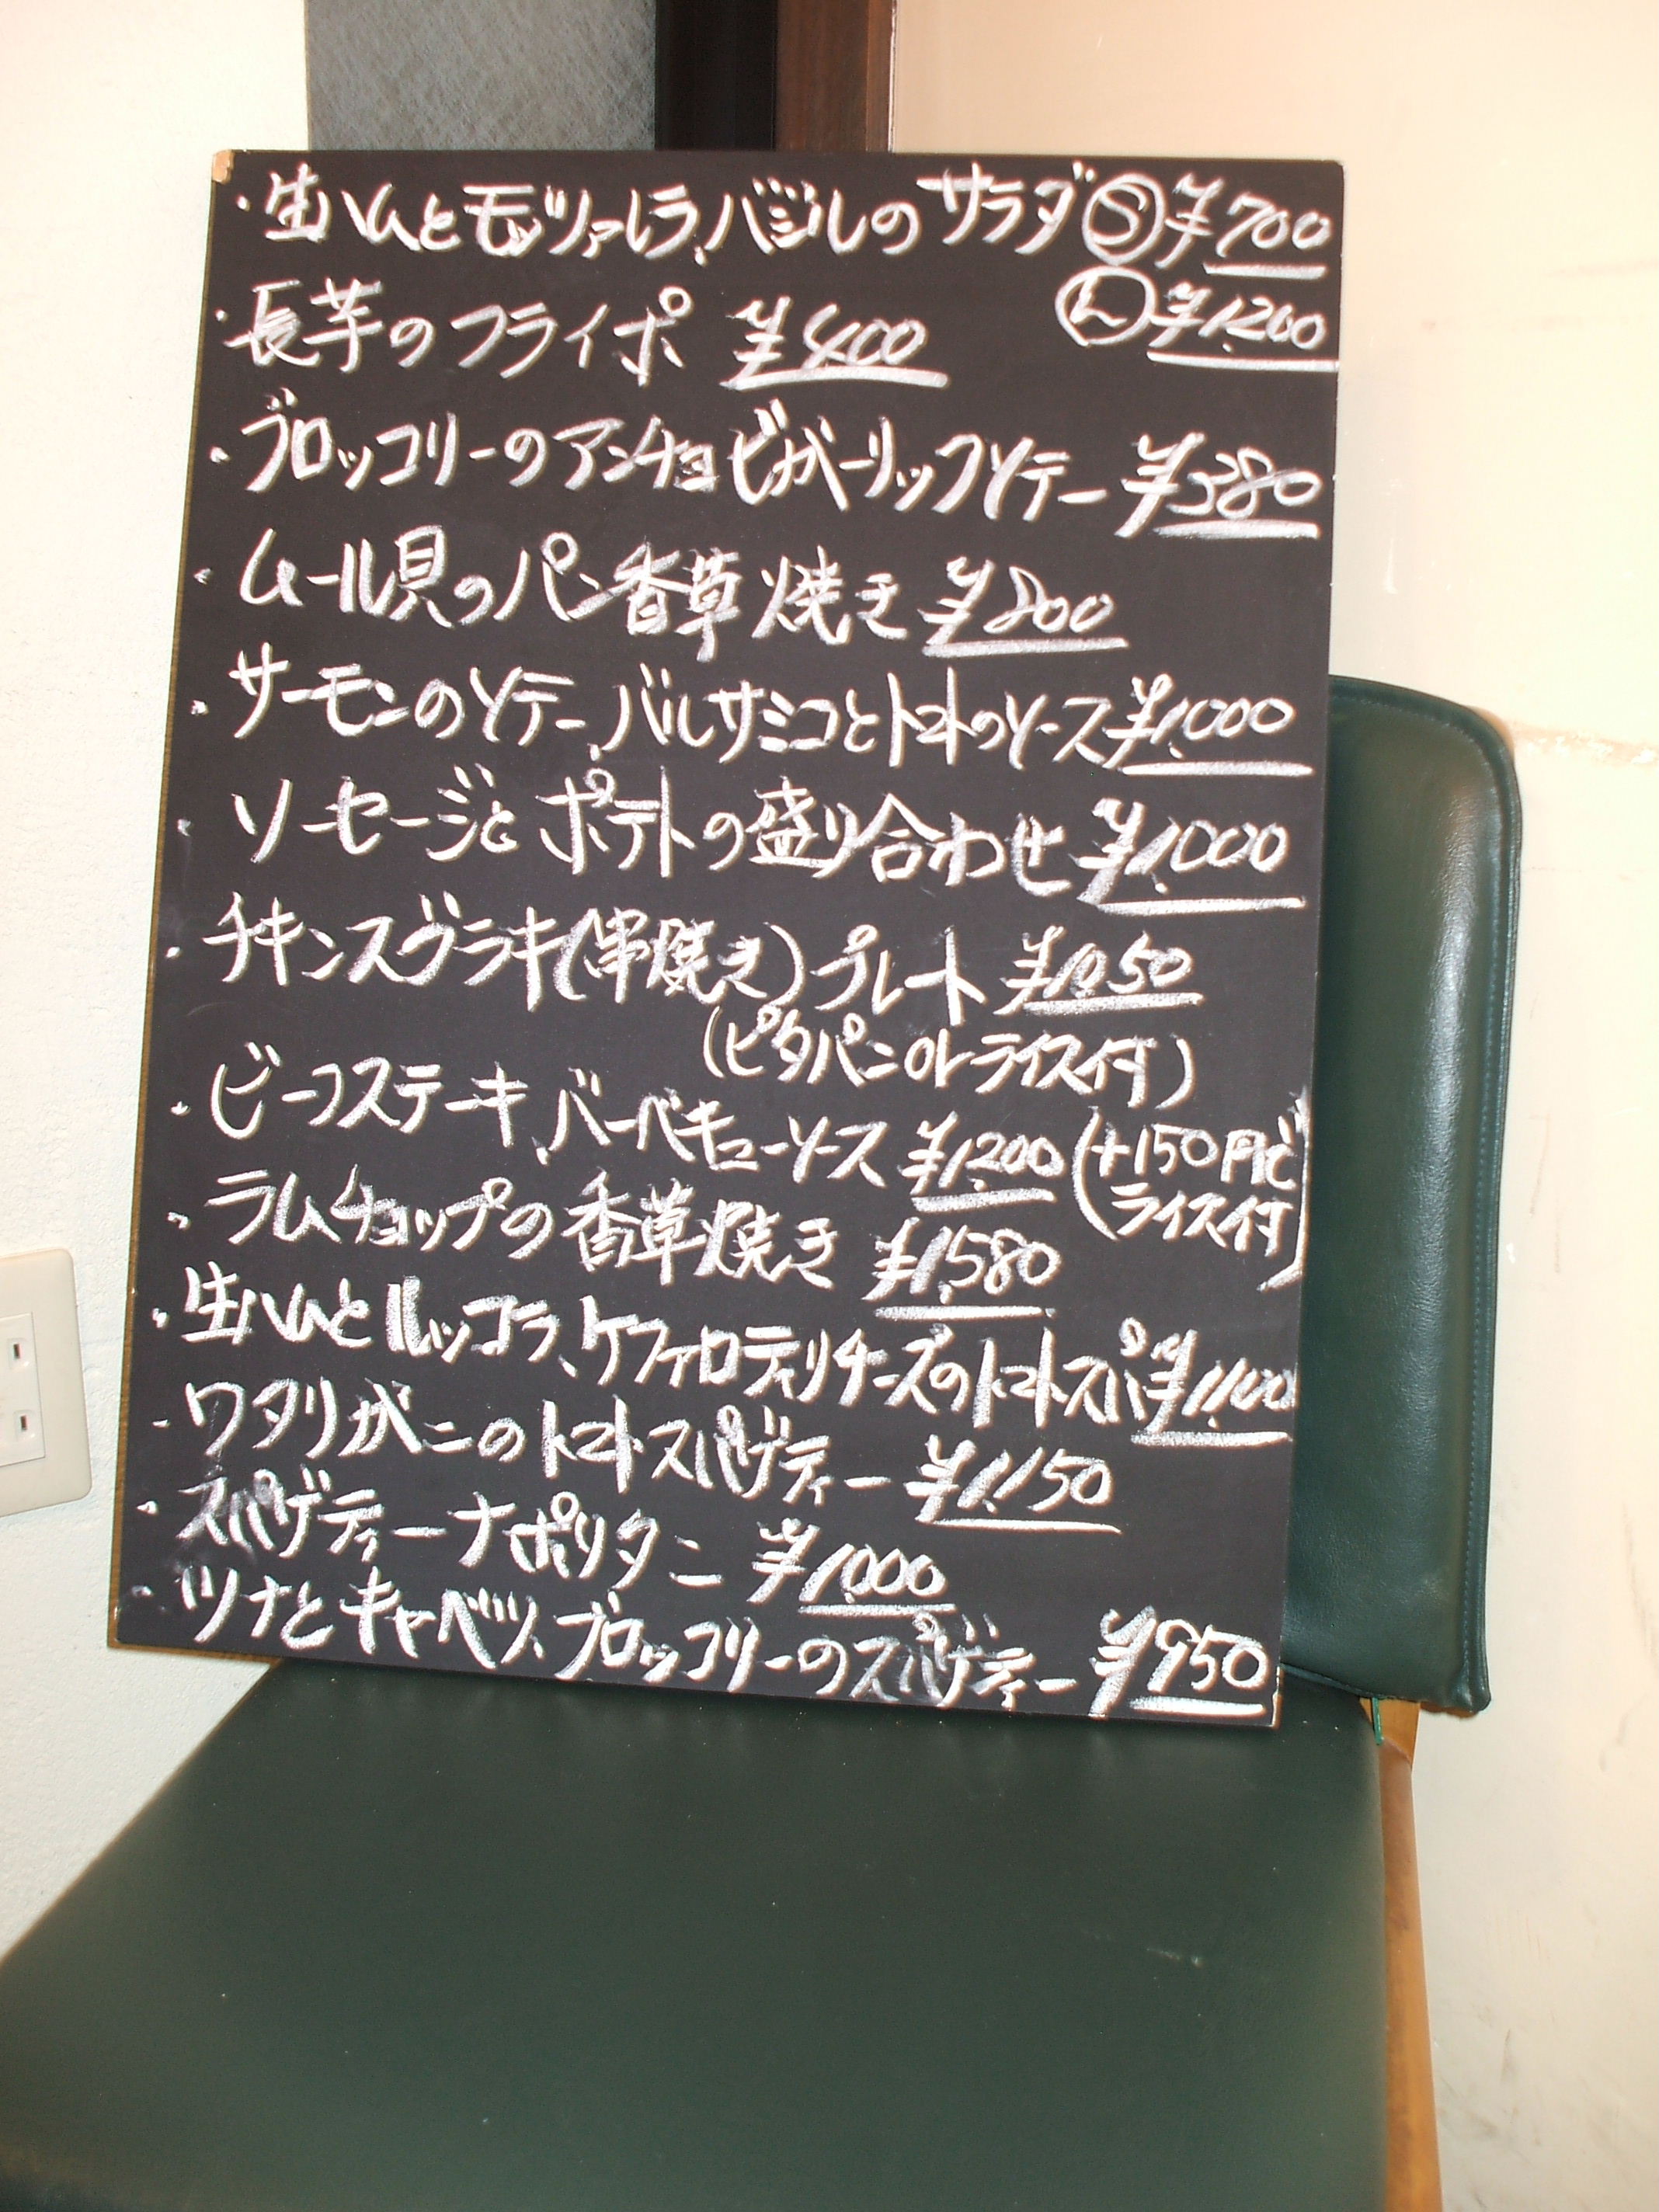 ・生ハムとモッツァレラ、バジルのサラダ Ⓢ ¥700
Ⓛ ¥1,200
・長芋のフライポ ¥400
・ブロッコリーのアンチョビガーリックソテー ¥380
・ムール貝のパン香草焼き ¥800
・サーモンのソテー、バルサミコとトマトのソース ¥1,000
・ソーセージとポテトの盛り合わせ ¥1,000
・チキンスヴラキ(串焼き)プレート ¥1,050
(ピタパンorライス付)
・ビーフステーキ、バーベキューソース ¥1,200 (+150円で
ライス付)
・ラムチョップの香草焼き ¥1,580
・生ハムとルッコラ、ケファロティリチーズのトマトスパ ¥1,100
・ワタリガニのトマトスパゲティー ¥1,150
・スパゲティーナポリタン ¥1,000
・ツナとキャベツ、ブロッコリーのスパゲティー ¥950